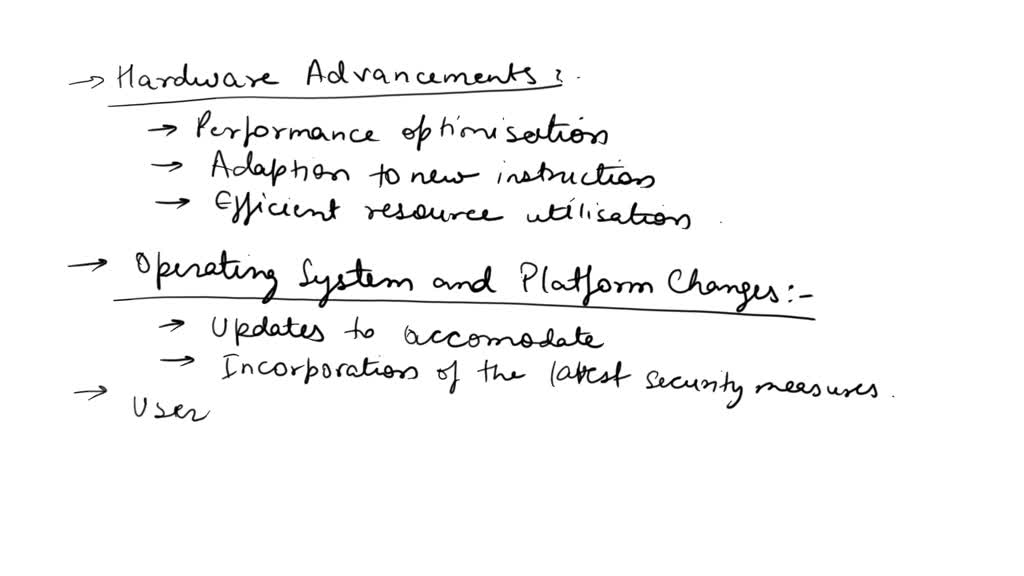 → Hardware Advancements :.
→ Performance optimisation
→ Adaption to new instruction
→ Efficient resource utilisation.
→ Operating System and Platform Changes:-
→ Updates to accomodate
→ Incorporation of the latest security measures.
→ User